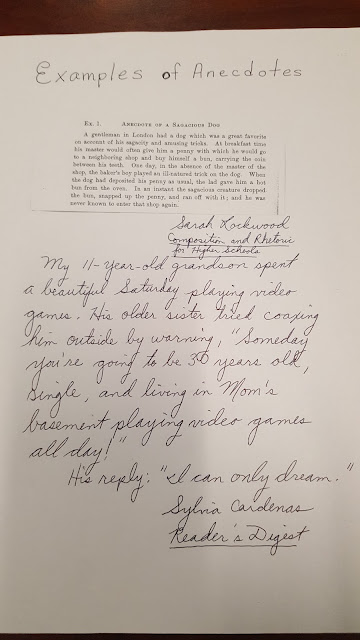 Examples of Anecdotes
Ex. 1. Anecdote of a Sagacious Dog
A gentleman in London had a dog which was a great favorite
on account of his sagacity and amusing tricks. At breakfast time
his master would often give him a penny with which he would go
to a neighboring shop and buy himself a bun, carrying the coin
between his teeth. One day, in the absence of the master of the
shop, the baker's boy played an ill-natured trick on the dog. When
the dog had deposited his penny as usual, the lad gave him a hot
bun from the oven. In an instant the sagacious creature dropped
the bun, snapped up the penny, and ran off with it; and he was
never known to enter that shop again.
Sarah Lockwood
Composition and Rhetoric
for Higher Schools
My 11-year-old grandson spent
a beautiful Saturday playing video
games. His older sister tried coaxing
him outside by warning, "Someday
you're going to be 30 years old,
single, and living in Mom's
basement playing video games
all day!"
His reply: "I can only dream."
Sylvia Cardenas
Reader's Digest